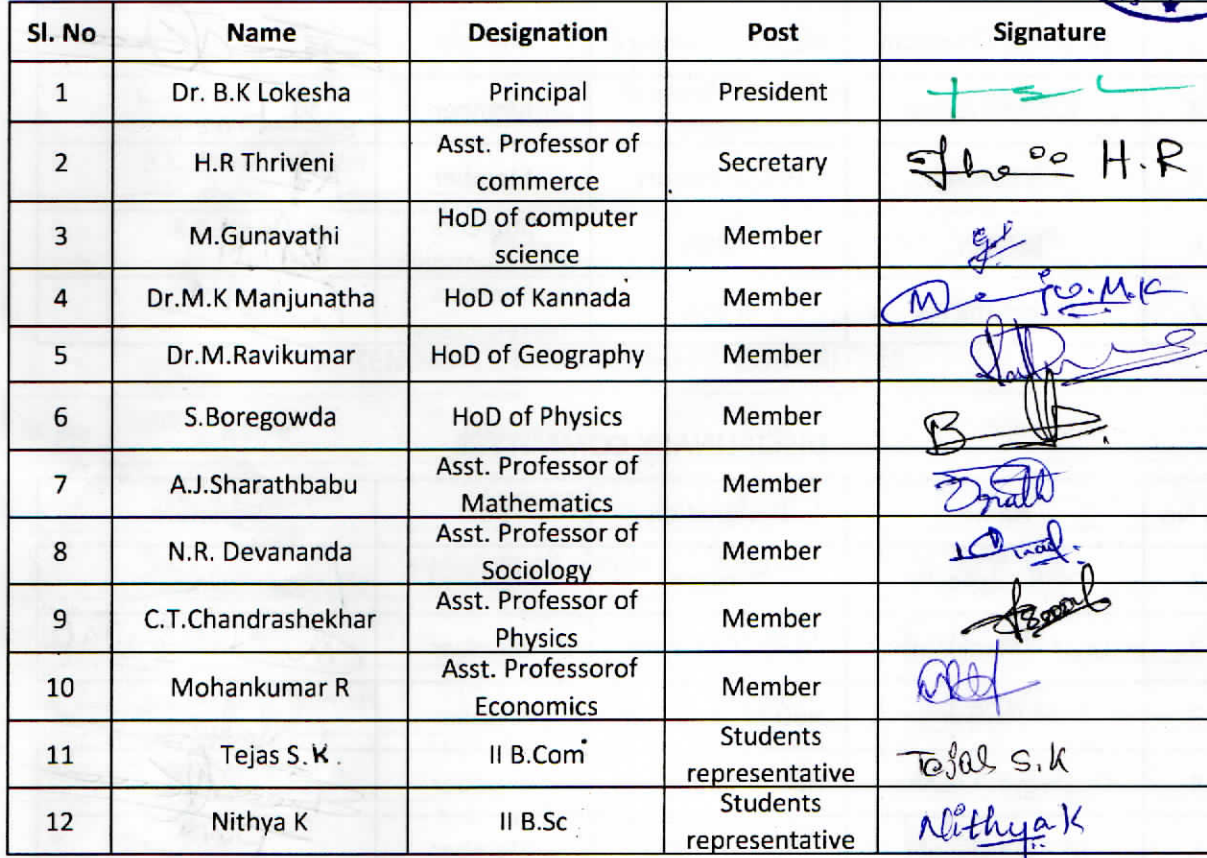 Sl. No Name Designation Post Signature
1 Dr. B.K Lokesha Principal President
2 H.R Thriveni Asst. Professor of commerce Secretary H.R
3 M.Gunavathi HoD of computer science Member
4 Dr.M.K Manjunatha HoD of Kannada Member M.K
5 Dr.M.Ravikumar HoD of Geography Member
6 S.Boregowda HoD of Physics Member
7 A.J.Sharathbabu Asst. Professor of Mathematics Member
8 N.R. Devananda Asst. Professor of Sociology Member
9 C.T.Chandrashekhar Asst. Professor of Physics Member
10 Mohankumar R Asst. Professorof Economics Member
11 Tejas S.K II B.Com Students representative Tejas S.K
12 Nithya K II B.Sc Students representative Nithya K